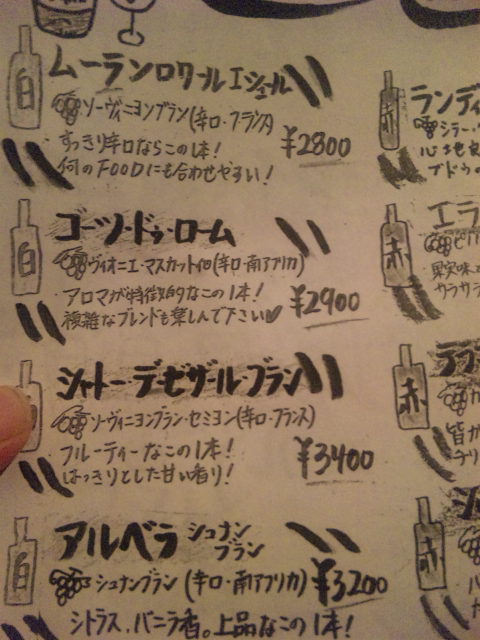 白
ムーランロワールエシュル
ソーヴィニヨンブラン(辛口・フランス)
すっきり辛口ならこの1本!
何のFOODにも合わせやすい!
¥2800
白
ゴーツ・ドゥ・ローム
ヴィオニエ・マスカット他(辛口・南アフリカ)
アロマが特徴的なこの1本!
複雑なブレンドも楽しんで下さい
¥2900
シャトー・デーゼザール・ブラン
ソーヴィニヨンブラン・セミヨン(辛口・フランス)
フルーティーなこの1本!
はっきりとした甘い香り!
¥3400
白
アルベラ シュナン
ブラン
シュナンブラン (辛口・南アフリカ) ¥3200
シトラス、バニラ香。上品なこの1本!
赤
ランディ
シラー・
心地良
ブドウの
赤
エラ
果実味と
サラサラ
赤
赤